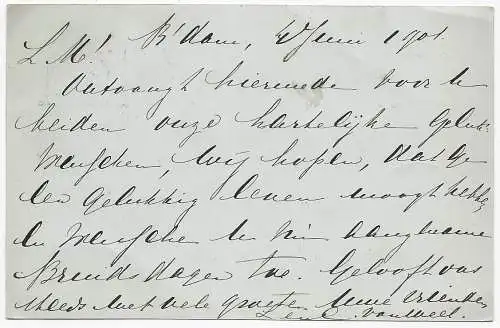 L M! R'dam, Juni 1901.
Ontvangt hiermede voor U
beiden onze hartelijke geluk-
wenschen, wij hopen, dat ge
een gelukkig leven moogt hebben
en wenschen U nu aangename
Bruidsdagen toe. Gelooft ons
steeds met vele groeten Uwe vrienden